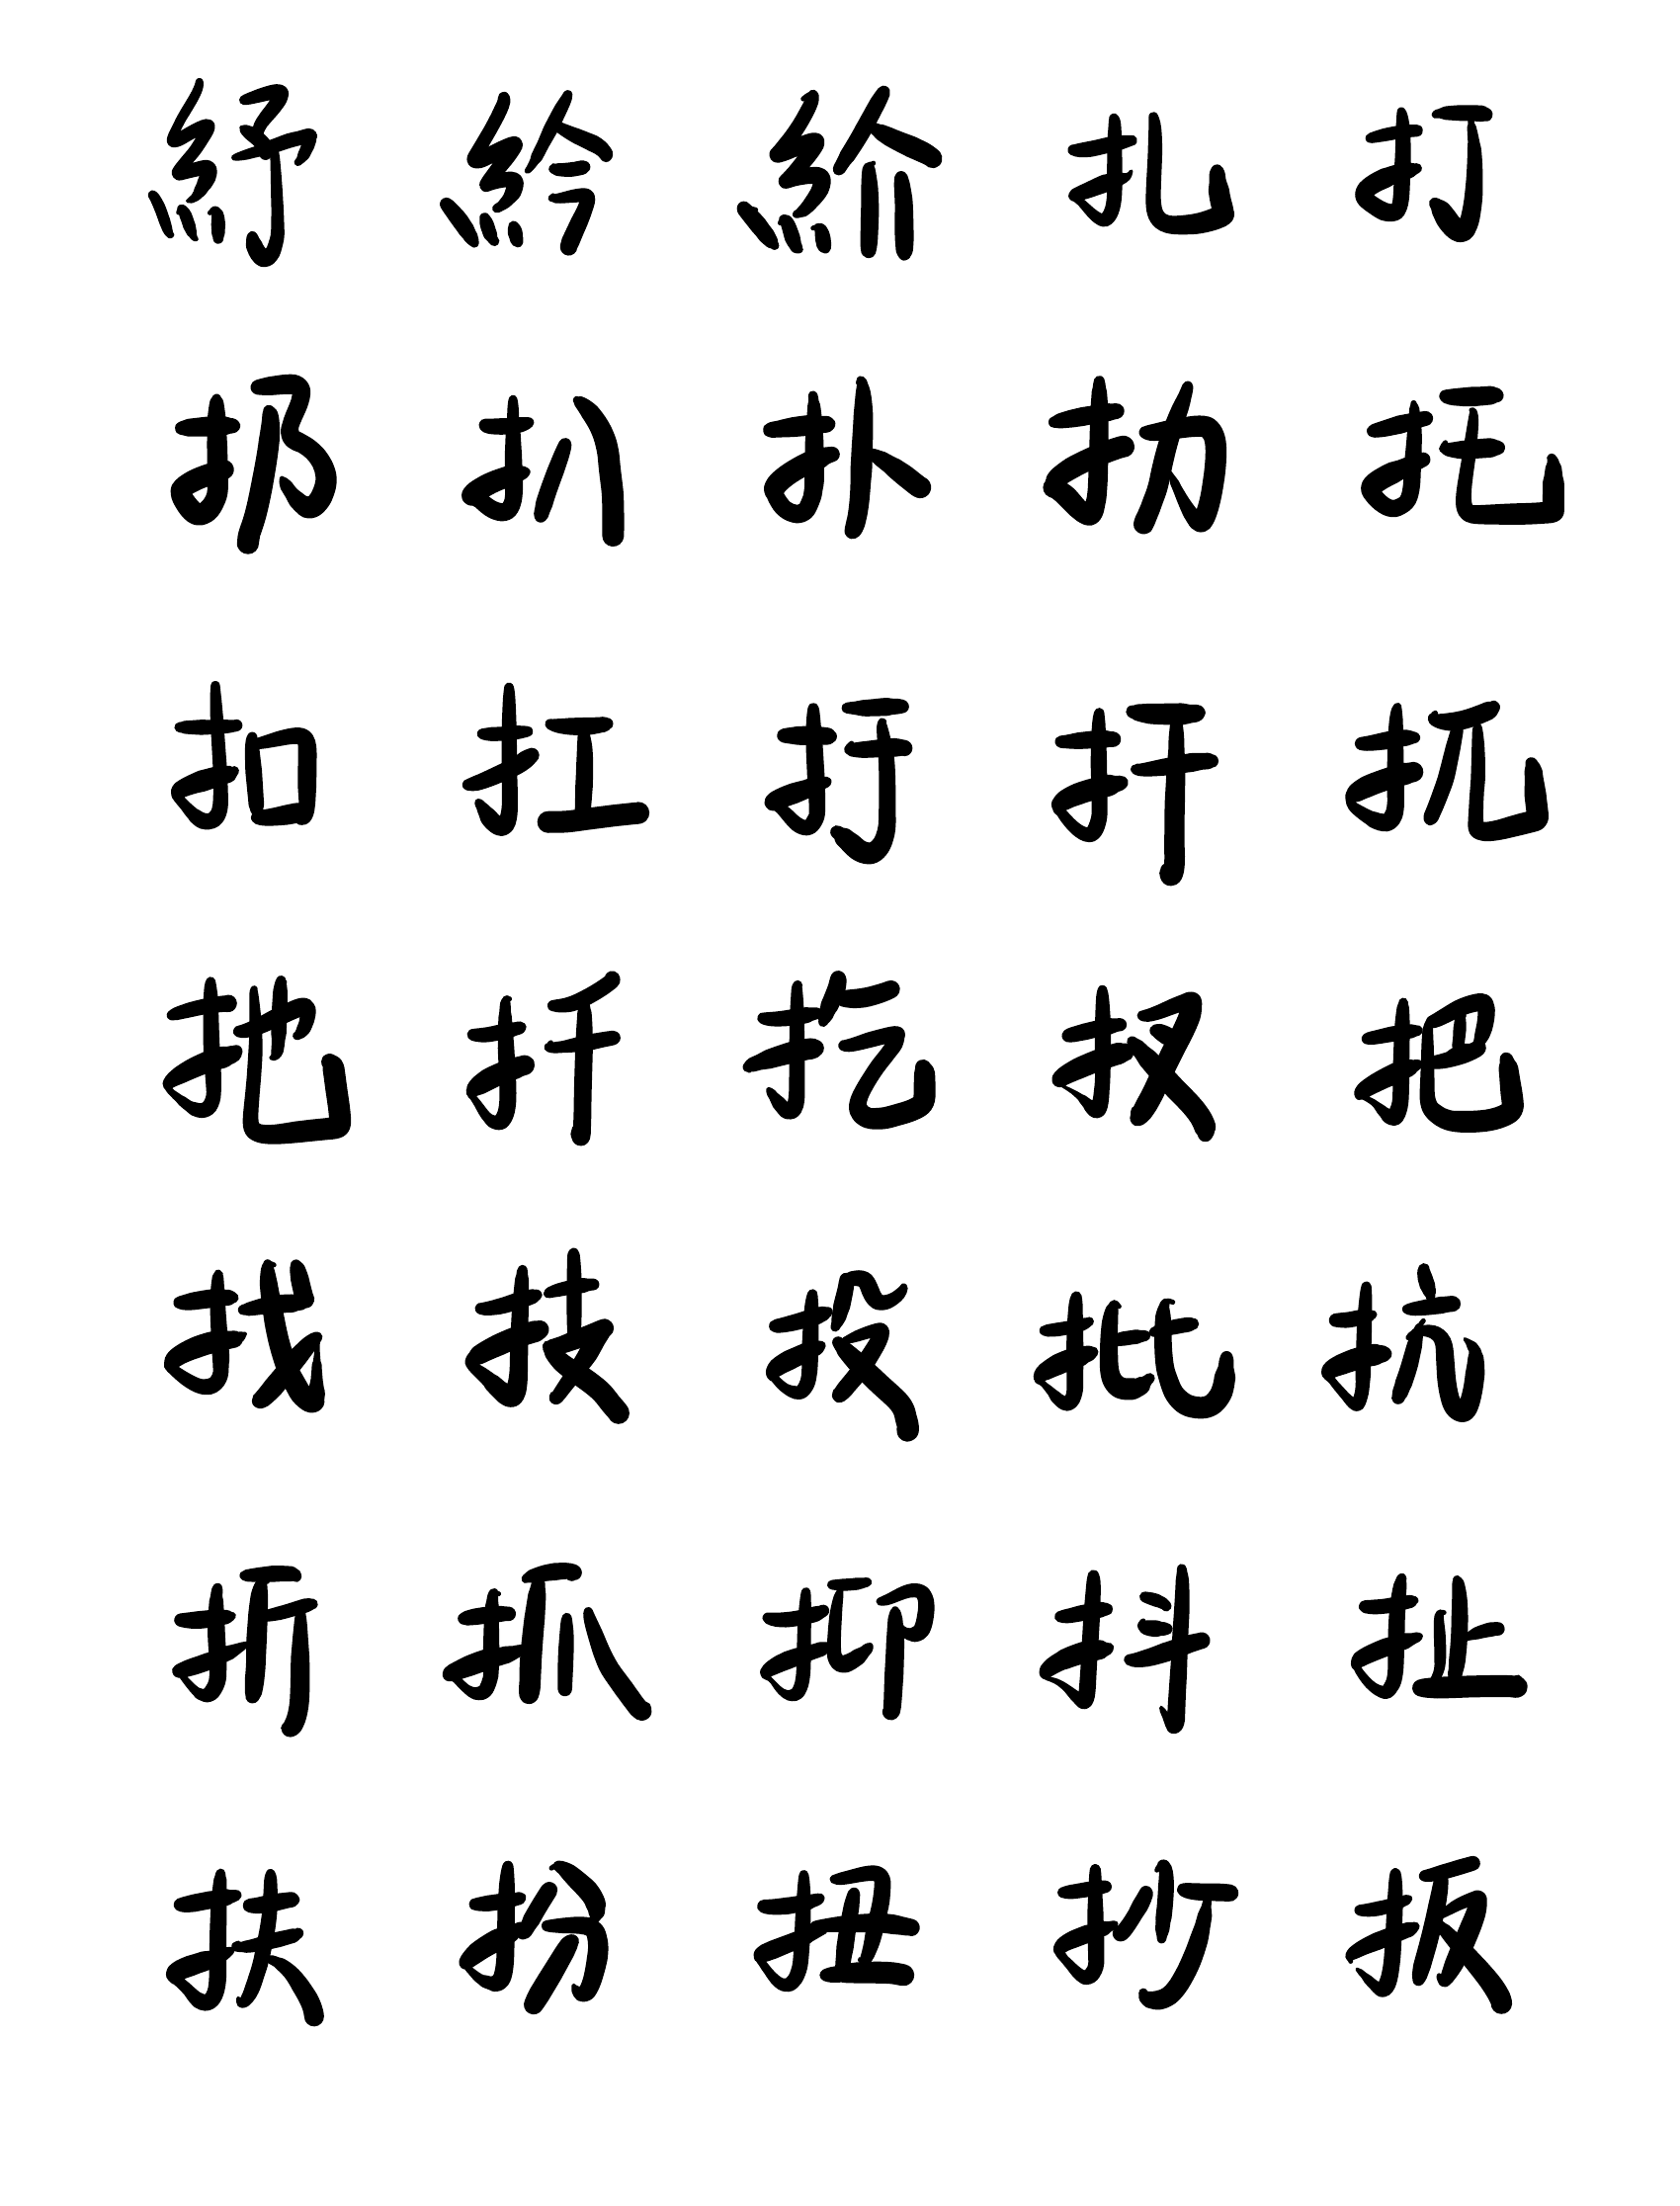 紓紟紒扎打
扔扒扑扐托
扣扛扜扞扤
扡扦扢扠把
找技投批抗
折抓抑抖扯
扶扮扭抄扳